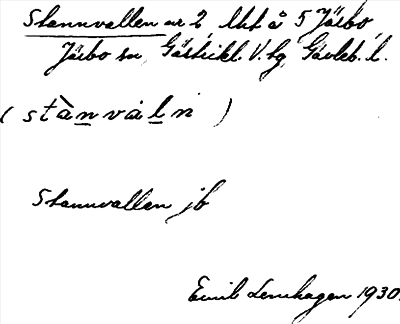 Stannvallen nr 2, lht å 5 Jäsbo,
Järbo sn, Gästrikl. V. tg, Gävleb. l.
(stànvàln)
Stannvallen jb
Emil Lenhagen 1930.